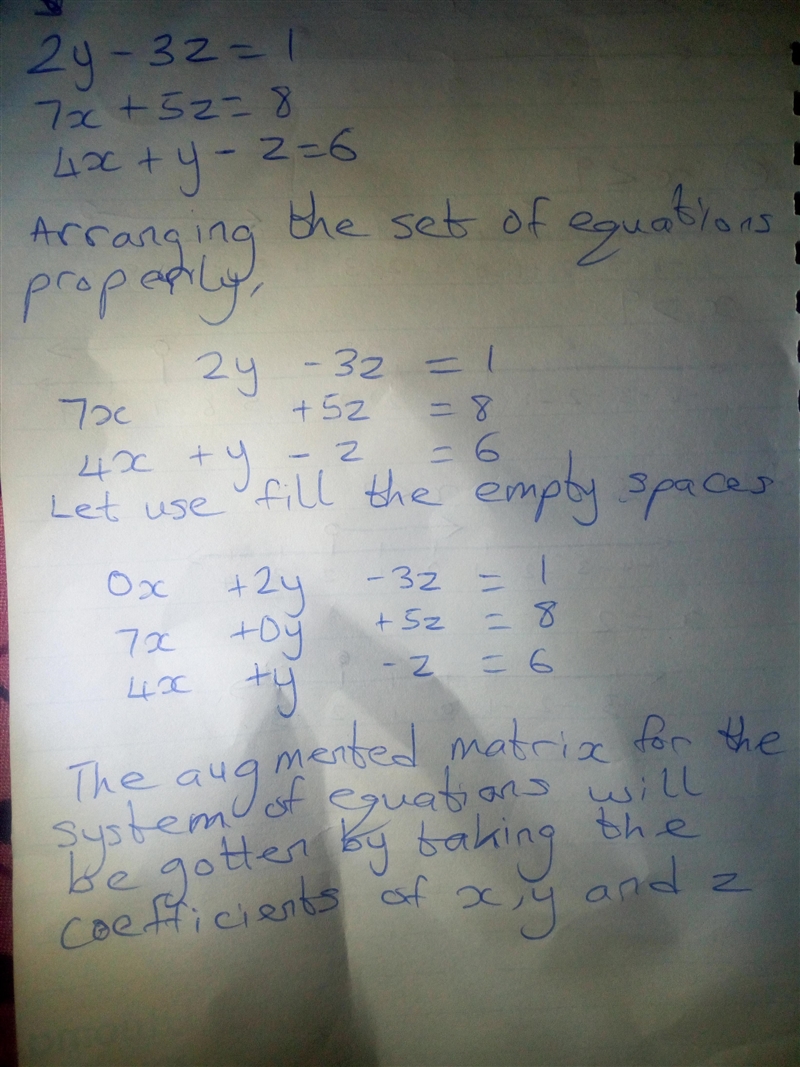 2y - 3z = 1
7x + 5z = 8
4x + y - z = 6
Arranging the set of equations
properly,
2y - 3z = 1
7x + 5z = 8
4x + y - z = 6
Let use fill the empty spaces
0x + 2y - 3z = 1
7x + 0y + 5z = 8
4x + y - z = 6
The augmented matrix for the
system of equations will
be gotten by taking the
coefficients of x, y and z